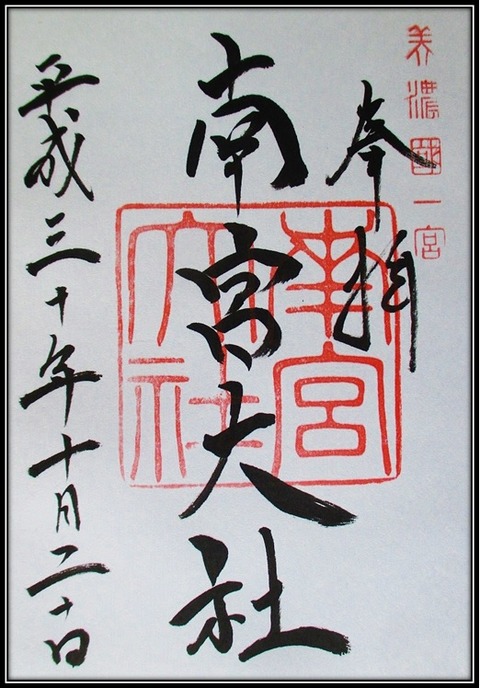 美濃國一宮
奉拝
南宮大社
南宮大社
平成三十年十月二十日